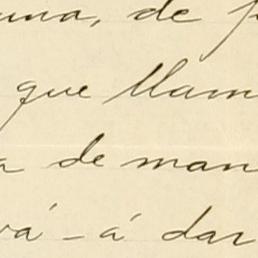 una, de f
que llam
a de man
vá - á dar